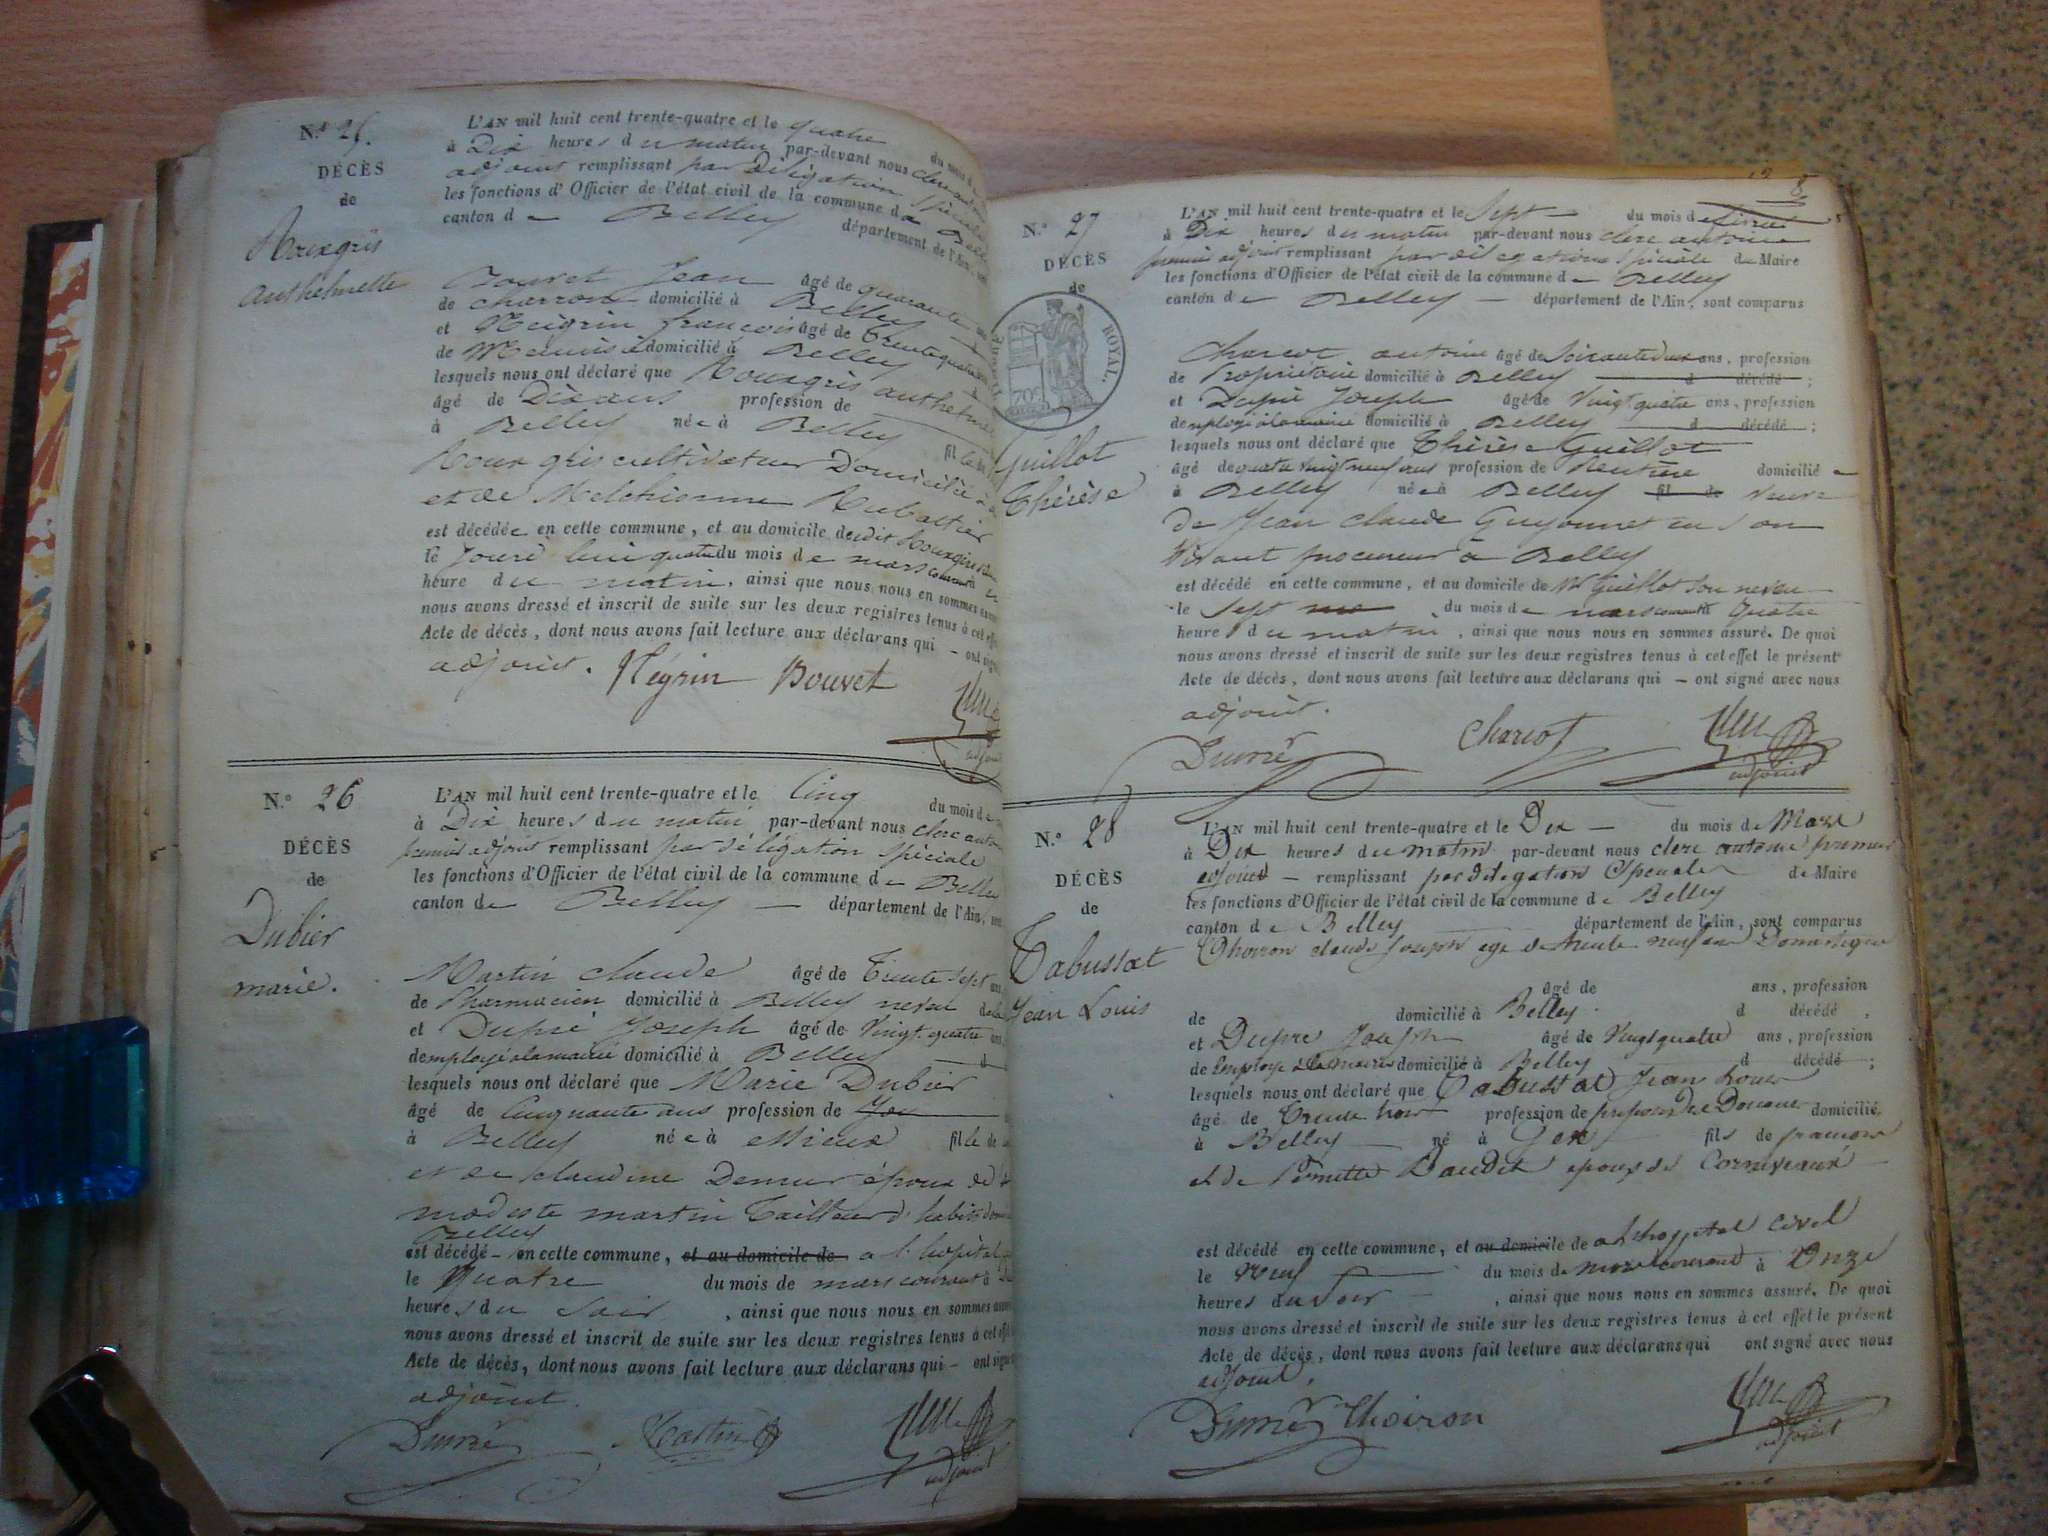 N.° 25.
DÉCÈS
de
Rouxgris
Anthelmette
L'AN mil huit cent trente-quatre et le quatre du mois d
à Dix heures du matin par-devant nous clerc
adjoint remplissant par Déligation Spéciale
les fonctions d'Officier de l'état civil de la commune de
canton de Belley département de l'Ain,
Bouvet Jean âgé de quarante
de charron domicilié à Belley
et Neigrin francois âgé de Trente quatre
de domicilié à Belley
lesquels nous ont déclaré que Rouxgris
âgé de Dix ans profession de
à Belley née à Belley fille de
Roux gris cultivateur Domicilié à
et de Melchionne
est décédée en cette commune, et au domicile dudit Rouxgris
le quatre du mois de mars courant à
heure du matin, ainsi que nous nous en sommes
nous avons dressé et inscrit de suite sur les deux registres tenus à cet
Acte de décès, dont nous avons fait lecture aux déclarans qui - ont
adjoint. Négrin Bouvet
N.° 26
DÉCÈS
de
Dubier
marie.
L'AN mil huit cent trente-quatre et le Cinq du mois de
à Dix heures du matin par-devant nous clerc
premier adjoint remplissant par déligation spéciale
les fonctions d'Officier de l'état civil de la commune de
canton de Belley département de l'Ain,
Martin claude âgé de Trente sept ans
de Pharmacien domicilié à Belley neveu de la
et Dupré Joseph âgé de Vingt-quatre ans
d'employé à la mairie domicilié à Belley d
lesquels nous ont déclaré que Marie Dubier
âgé de Cinquante ans profession de
à Belley née à fille de
et de claudine épouse de
modeste martin Tailleur d'habits
Belley
est décédé en cette commune, et au domicile de a l'hopital
le Quatre du mois de mars courant à
heures du Soir, ainsi que nous nous en sommes
nous avons dressé et inscrit de suite sur les deux registres tenus à cet
Acte de décès, dont nous avons fait lecture aux déclarans qui - ont
adjoint.
Dupré Martin
adjoint
N.° 27
DÉCÈS
de
ROYAL.
Guillot
Thérèse
L'AN mil huit cent trente-quatre et le Sept du mois de
à Dix heures du matin par-devant nous clerc antoine
premier adjoint remplissant par déligation Spéciale du Maire
les fonctions d'Officier de l'état civil de la commune de Belley
canton de Belley département de l'Ain, sont comparus
Charcot antoine âgé de ans, profession
de Propriétaire domicilié à Belley d décédé ;
et Dupré Joseph âgé de Vingt quatre ans, profession
d'employé à la mairie domicilié à Belley d décédé ;
lesquels nous ont déclaré que Thérèse Guillot
âgé de quatre vingt neuf ans profession de Rentière domicilié e
à Belley née à Belley fil de veuve
de Jean claude Guyonnet en son
vivant procureur à Belley
est décédé en cette commune, et au domicile de Mr Guillot son neveu
le Sept du mois de mars courant à Quatre
heures du matin, ainsi que nous nous en sommes assuré. De quoi
nous avons dressé et inscrit de suite sur les deux registres tenus à cet effet le présent
Acte de décès, dont nous avons fait lecture aux déclarans qui - ont signé avec nous
adjoint.
Dupré Charcot
adjoint
N.° 28
DÉCÈS
de
Tabussat
Jean Louis
L'AN mil huit cent trente-quatre et le Dix du mois de Mars
à Dix heures du matin par-devant nous clerc antoine premier
adjoint remplissant par délégation Spéciale de Maire
les fonctions d'Officier de l'état civil de la commune de Belley
canton de Belley département de l'Ain, sont comparus
Thoiron claude Joseph age de trente neuf ans Domestique
âgé de ans, profession
de domicilié à Belley d décédé ,
et Dupre Joseph âgé de Vingt quatre ans, profession
de Employé à la mairie domicilié à Belley d décédé ;
lesquels nous ont déclaré que Tabussat Jean Louis
âgé de Trente profession de préposé de Douane domicilié
à Belley né à Gex fils de francois
et de Pernette Baudet epoux de
est décédé en cette commune, et au domicile de a L'hoppital Civil
le Neuf du mois de mars courant à Onze
heures du Soir, ainsi que nous nous en sommes assuré. De quoi
nous avons dressé et inscrit de suite sur les deux registres tenus à cet effet le présent
Acte de décès, dont nous avons fait lecture aux déclarans qui ont signé avec nous
adjoint.
Dupré Thoiron
adjoint